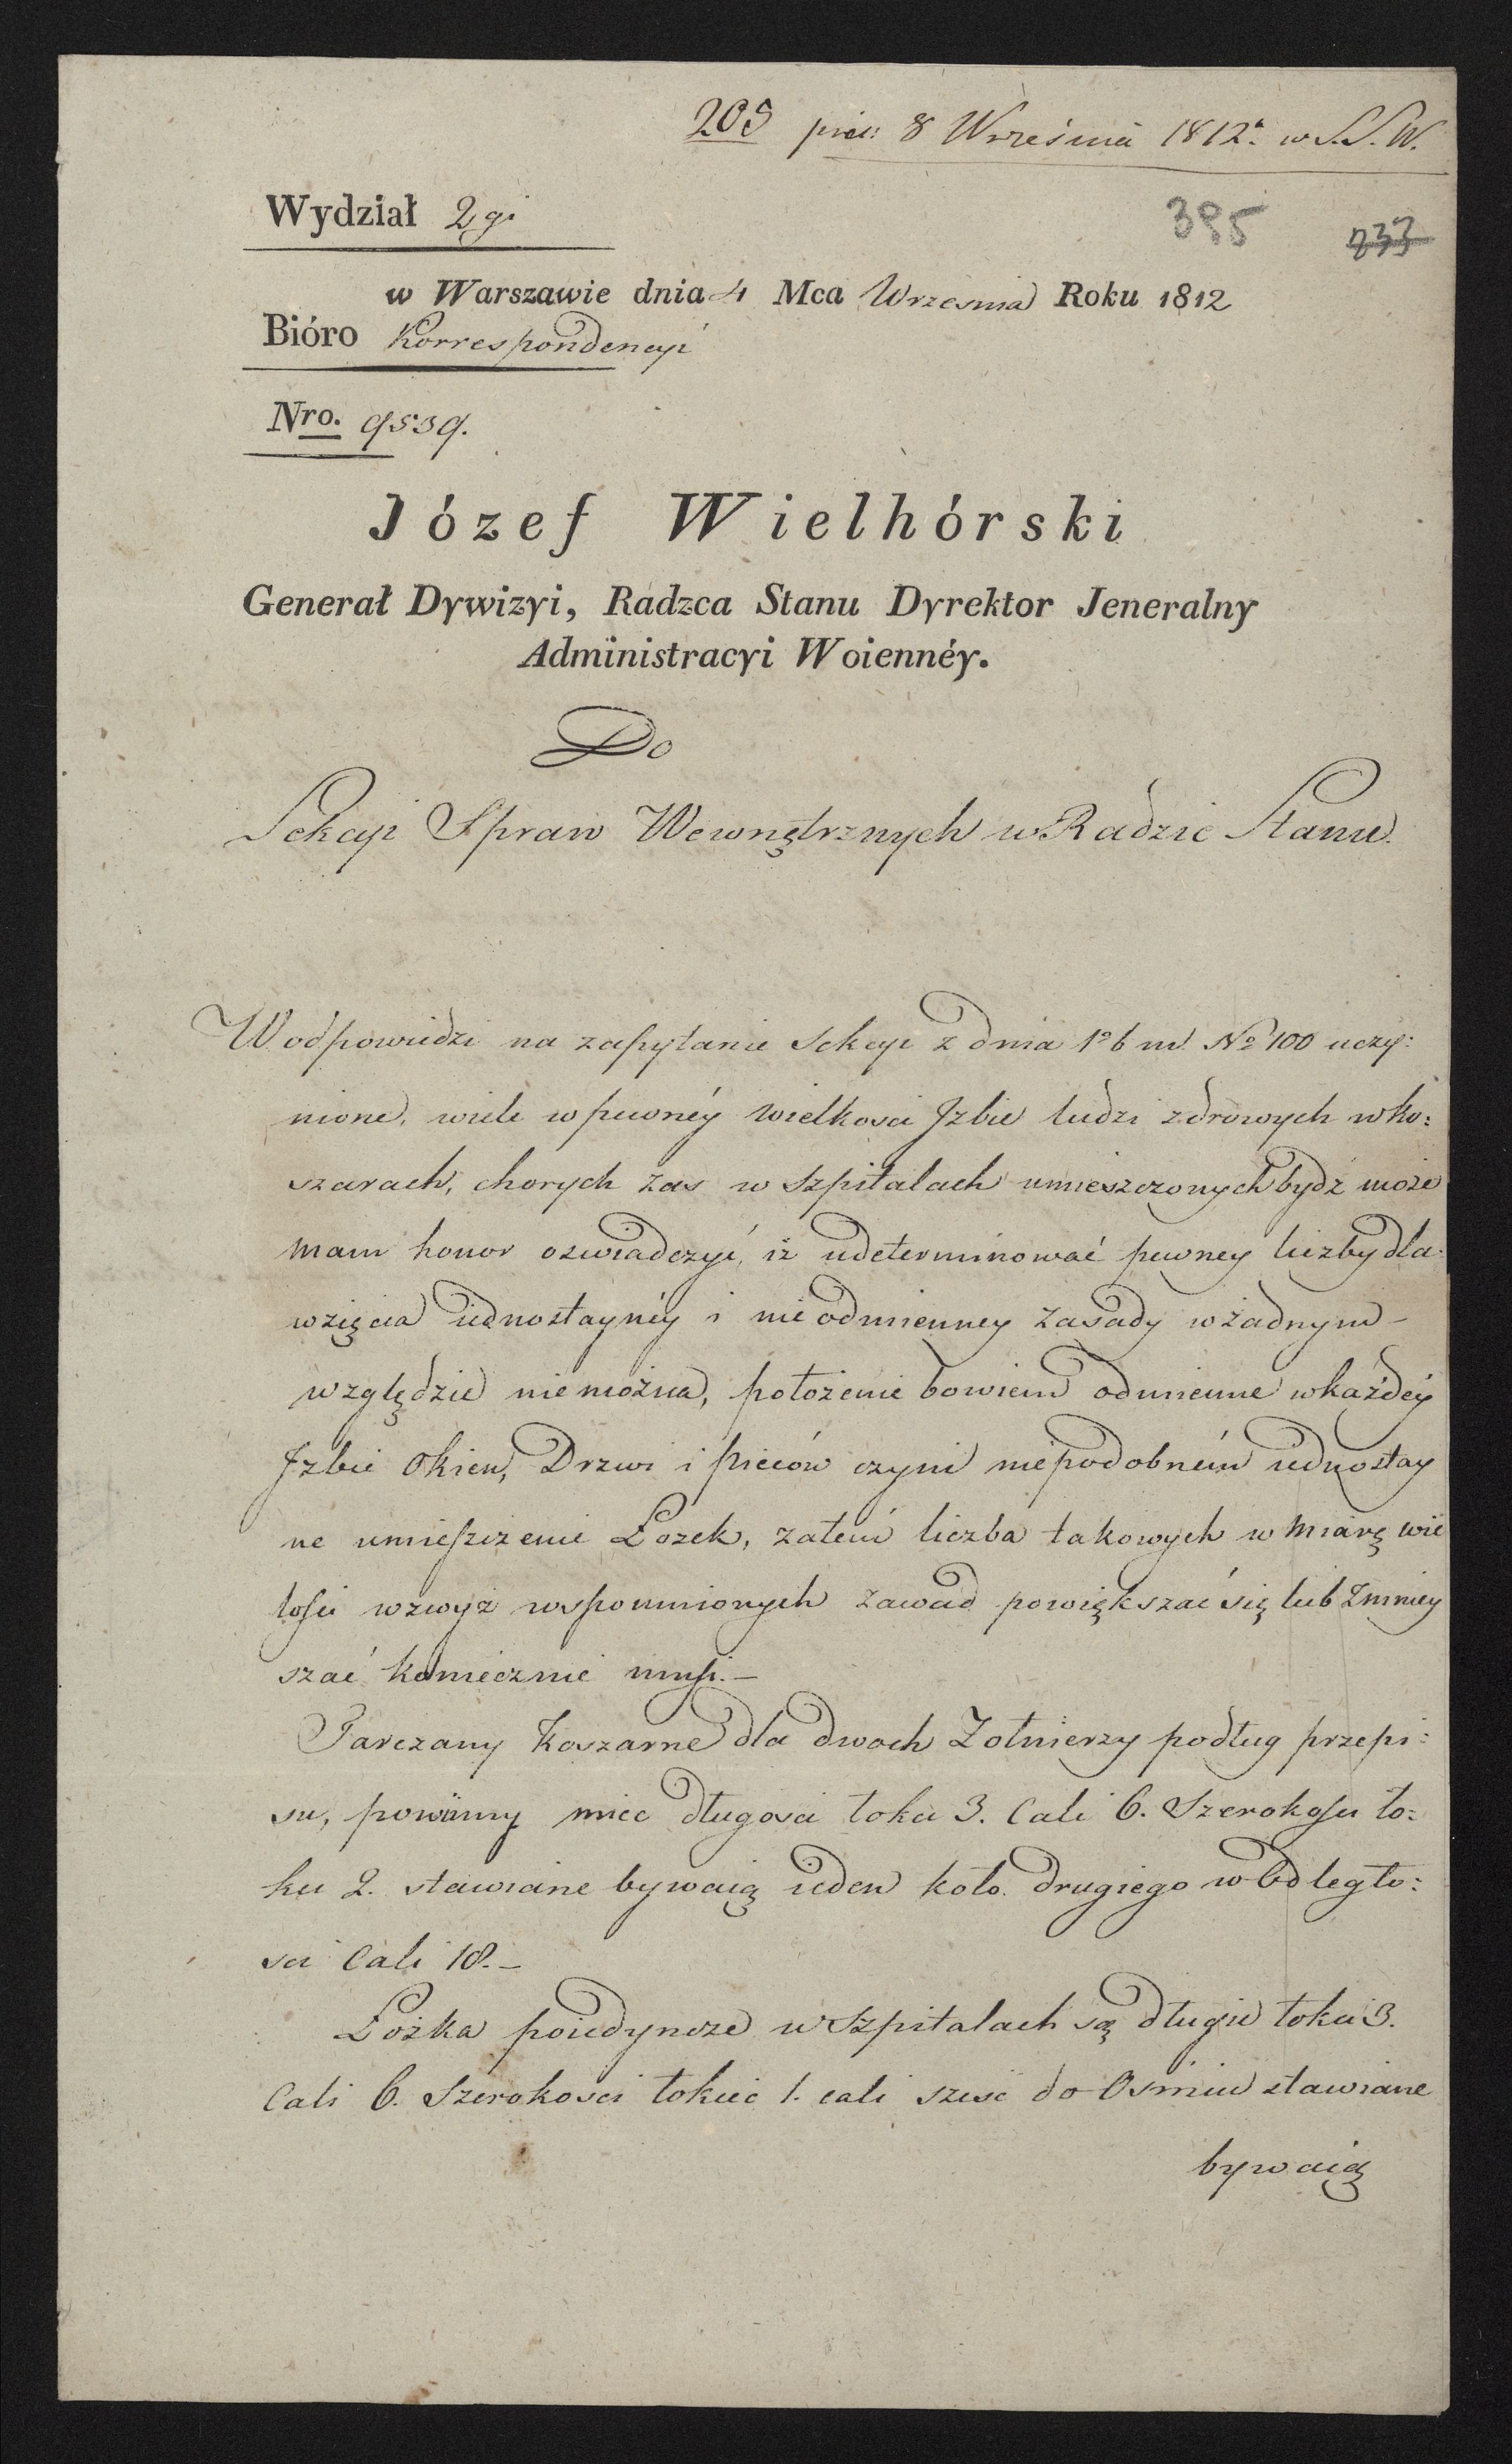 205 pręt: 8 Wrzesnia 1812. w S.S.W.
Wydział 2gi
395 233
w Warszawie dnia 4 Mca Wrzesnia Roku 1812
Bióro Korrespondencyi
Nro. 9539.
Józef Wielhórski
Generał Dywizyi, Radzca Stanu Dyrektor Jeneralny
Administracyi Woiennéy.
Do
Sekcyi Spraw Wewnętrznych w Radzie Stanu.
W odpowiedzi na zapytanie Sekcyi z dnia 1º b m. Nº 100 uczy:
nione, wiele w pewnéy wielkosci Jzbie ludzi zdrowych w ko:
szarach, chorych zas w Szpitalach umieszczonych bydź może
mam honor oswiadczyć, iż udeterminować pewney liczby dla
wzięcia iednostaynéy i nieodmienney zasady w żadnym –
względzie niemożna, położenie bowiem odmienne w każdéy
Jzbie Okien, Drzwi i pieców czyni niepodobném iednostay
ne umieszczenie Łozek, zatém liczba takowych w miarę wie
losci wzwyż wspomnionych zawad powiększać się lub zmniey
szać koniecznie musi. –
Tarczany koszarne dla dwoch Zołnierzy podług przepi:
su, powinny miec długosci łokci 3. Cali 6. Szerokosci ło:
kci 2. stawiane bywaią ieden koło drugiego w Odległo:
sci Cali 18. –
Łożka poiedyncze w Szpitalach są długie łokci 3.
Cali 6. Szerokosci łokieć 1. cali szesć do Osmiu stawiane
bywaią